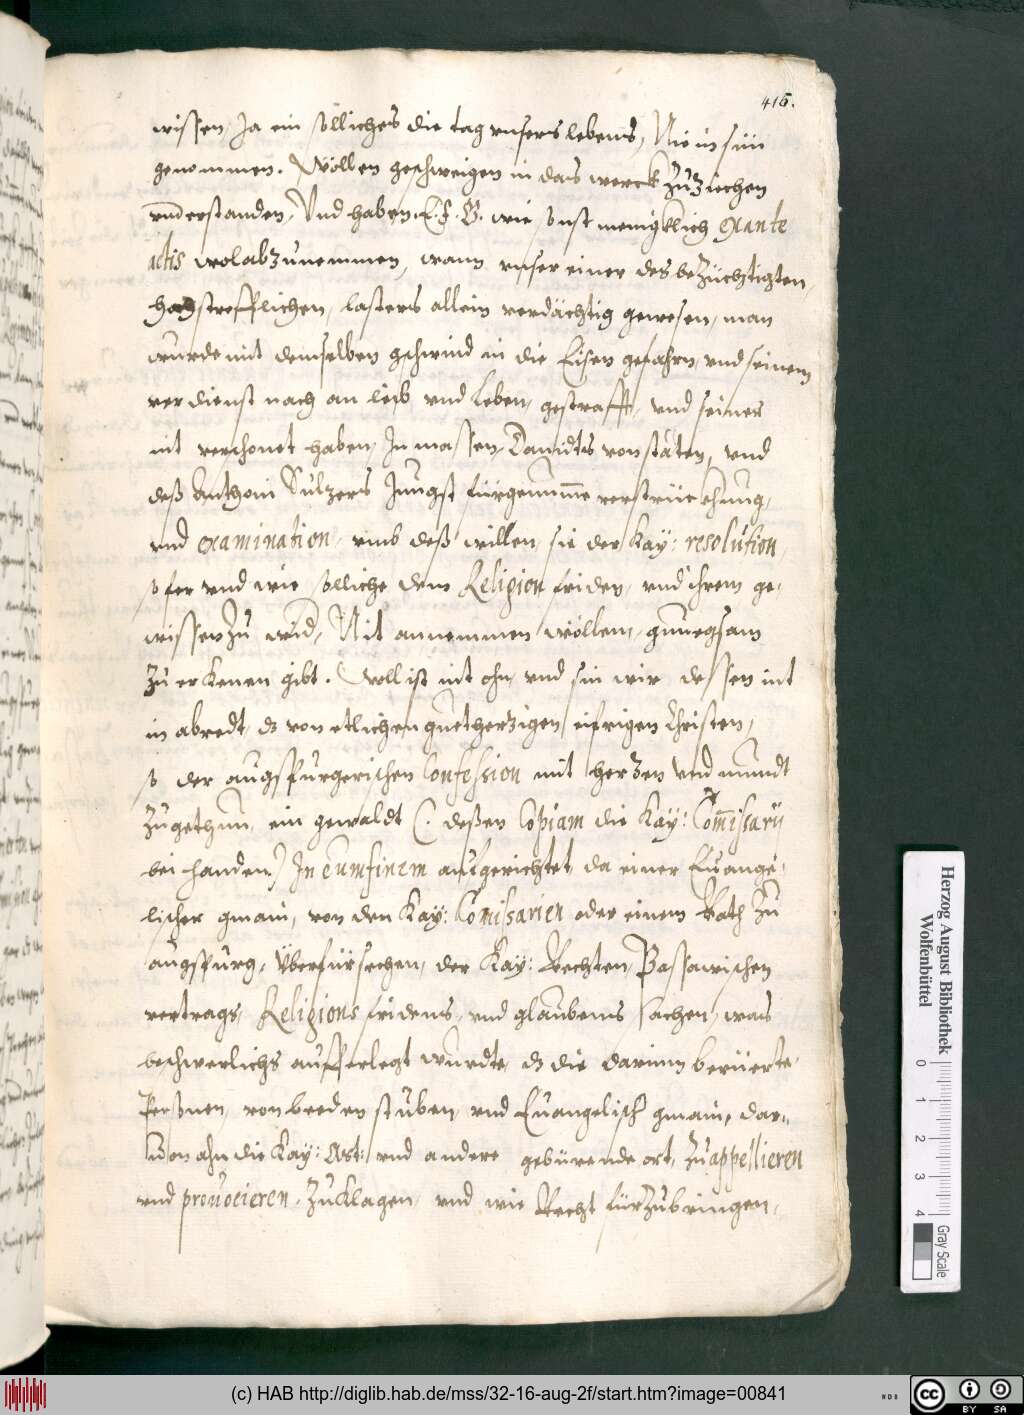 415.
wissen, Ja ein solliches die tag vnsers lebens, Nie in sün
genommen. Wöllen geschweigen in das werck zuziechen
vnderstanden, Vnd haben E. F. G. wie sonst menigklich ex ante
actis wol abzunemmen, wann vnser einer des bezüchtigten,
hochstrefflichen, lasters allein verdächtig gewesen, man
wurde mit demselben gschwind in die Eisen gefahrn, vnd seinem
verdienst nach an leib vnd Leben, gestrafft, vnd seines
nit verschonet haben, In massen, Dauidts von stäten, vnd
deß Anthoni Sulzers Jungst fürgenumme verstrückhung,
vnd examination, vmb deß willen, sie der Kay: resolution,
so fer vnd wie solliche dem Religion friden, vnd ihrem ge,
wissen zu wid, Nit annemmen wöllem, gnuegsam
zu erkenen gibt. Woll ist nit ohn, vnd sin wir dessen nit
in abredt, dz von etlichen guetherzigen eifrigen Christen,
so der augspurgerischen Confession mit herzen vnd mundt
zugethun, ein gewaldt (. dessen Copiam die Kay: Comissarÿ
bei handen.) In eum finem aufgerichtet, da einer Euange,
lischer gmain, von den Kay: Comissarien oder einem Rath zu
augspurg, Überfürsechen, der Kay: Rechten, Passawischen
vertrags, Religions fridens, vnd glaubens sachen, was
beschwerlichs aufferlegt wurdte, dz die darinn beruerte,
Persönen, von beeden stuben, vnd Euangelisch gmain, dar,,
uon ahn die Kay: Mst: vnd andere gebürende ort, zu appellieren
vnd prouocieren, zu klagen, vnd wie Recht fürzubringen,
Herzog August Bibliothek
Wolfenbüttel
0 1 2 3 4
Gray Scale
(c) HAB http://diglib.hab.de/mss/32-16-aug-2f/start.htm?image=00841
WDB
cc BY SA